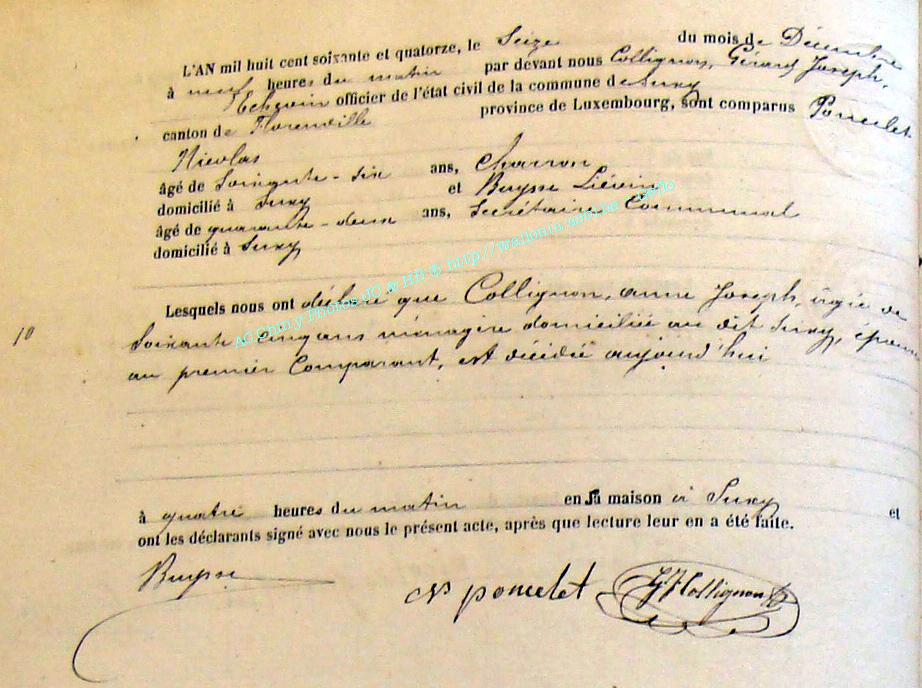 L'AN mil huit cent soixante et quatorze, le Seize du mois de Décembre
à neuf heures du matin par dévant nous Collignon, Gérard Joseph,
Echevin officier de l'état civil de la commune de Suxy
canton de Florenville province de Luxembourg, sont comparus Poncelet
Nicolas
âgé de Soixante-six ans, Charron
domicilié à Suxy et Buysse Liévin
âgé de quarante-deux ans, Secrétaire Communal
domicilié à Suxy
Lesquels nous ont déclaré que Collignon, anne Joseph, âgée de
10
Soixante cinq ans ménagère domiciliée au dit Suxy, épouse
au premier Comparant, est décédée aujourd'hui
à quatre heures du matin en sa maison à Suxy et
ont les déclarants signé avec nous le présent acte, après que lecture leur en a été faite.
Buysse
N poncelet
GJCollignon
AC Chiny Photos JO & HB © http://wallonia